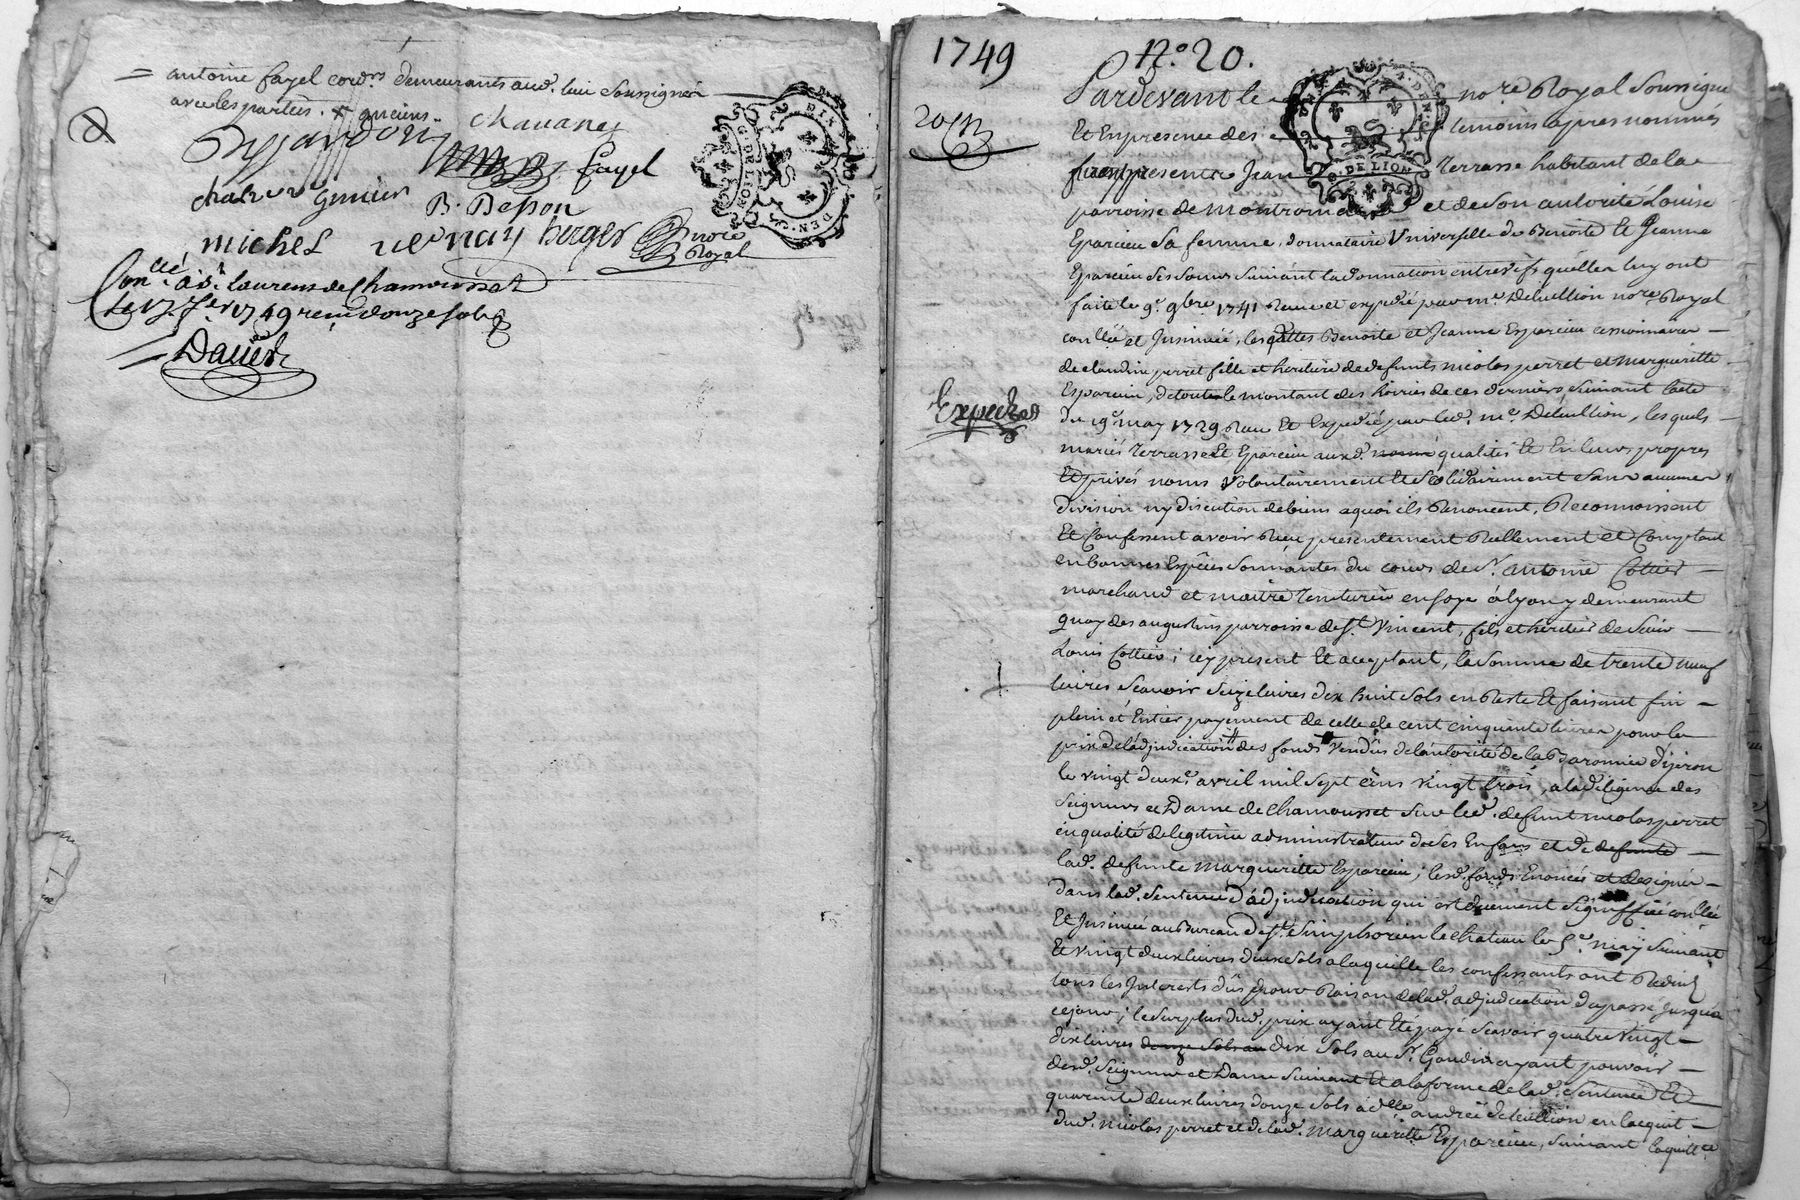 = antoine fayel cord.rs demeurants aud. lieu soussignés
avec les parties. x anciens.
Dejardon chavanes
fayel
chazer Grivier
B. Besson
michel vernay berger nore
Royal
Con.llé à St laurens de Chamousset
le 17 fer 1749 reçu douze sols
Daller
1749 No. 20.
20
Pardevant le nore Royal soussigné
Et En presence des temoins apres nommés
furent presents Jean Terrasse habitant de la
parroisse de montromand et de son autorité Louise
Eparcieu sa femme, donnataire Universelle de Benoite Et Jeanne
Eparcieu ses soeurs suivant la donnation entrevifs quelles luy ont
faite le 9e 9bre 1741 Reçue et expedié par me Delullion nore Royal
con.llée et Insinuée, lesquelles Benoite et Jeanne Eparcieu cessionnaires
de claudine perret fille et heritiere de defunts nicolas perret et marguerite
Eparcieu, de toute le montant des hoiries de ces derniers, suivant l'acte
Expedié
du 19e may 1729 Reçu Et Expedié par led. me Delullion, lesquels
mariés Terrasse Et Eparcieu auxd. noms qualités Et En leurs propres
Et privés noms volontairement Et solidairement sans aucune
division ny discution de biens a quoi ils Renoncent, Reconnoissent
Et Confessent avoir Reçu presentement Reellement et Comptant
en bonnes Espèces sonnantes du cours de Sr. antoine Cottier
marchand et maître teinturier en soye à lyon y demeurant
quay des augustins parroisse de St. Vincent, fils et heritier de Sieur
Louis Cottier; icy present Et acceptant, la somme de trente neuf
livres sçavoir seize livres dix huit sols en Reste Et faisant fin
plein et Entier payement de celle de cent cinquante livres pour le
prix de l'adjudication des fonds vendus de l'autorité de la Baronnie d'yzeron
le vingt deuxe avril mil sept cens vingt trois, a la diligence des
seigneurs et Dame de Chamousset sur led. defunt nicolas perret
en qualité de legitime administrateur de ses Enfans et de defunte
lad. defunte marguerite Eparcieu; lesd. fonds Enoncés et designés
dans lad. sentence d'adjudication qui est duement signiffiée con.llée
Et Insinuée au Bureau de St. Simphorien le chateau le 5e may suivant
Et vingt deux livres deux sols a laquelle les confessants ont Reduit
tous les Interests dûs pour Raison de lad. adjudication du passé jusqu'à
ce jour; le surplus dud. prix ayant Eté payé sçavoir quatre vingt
dix livres douze sols au dix sols au Sr. Gaudin ayant pouvoir
desd. Seigneur et Dame suivant Et a la forme de lad. sentence Et
quarente deux livres douze sols à dlle andrée delullion en l'acquit
dud. nicolas perret et de lad. marguerite Eparcieu, suivant la quittce